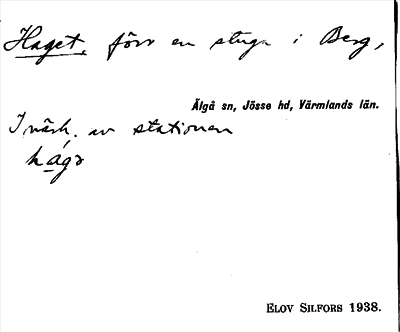 Haget, förr en stuga i Berg,
Älgå sn, Jösse hd, Värmlands län.
I närh. av stationen
hágə
ELOV SILFORS 1938.